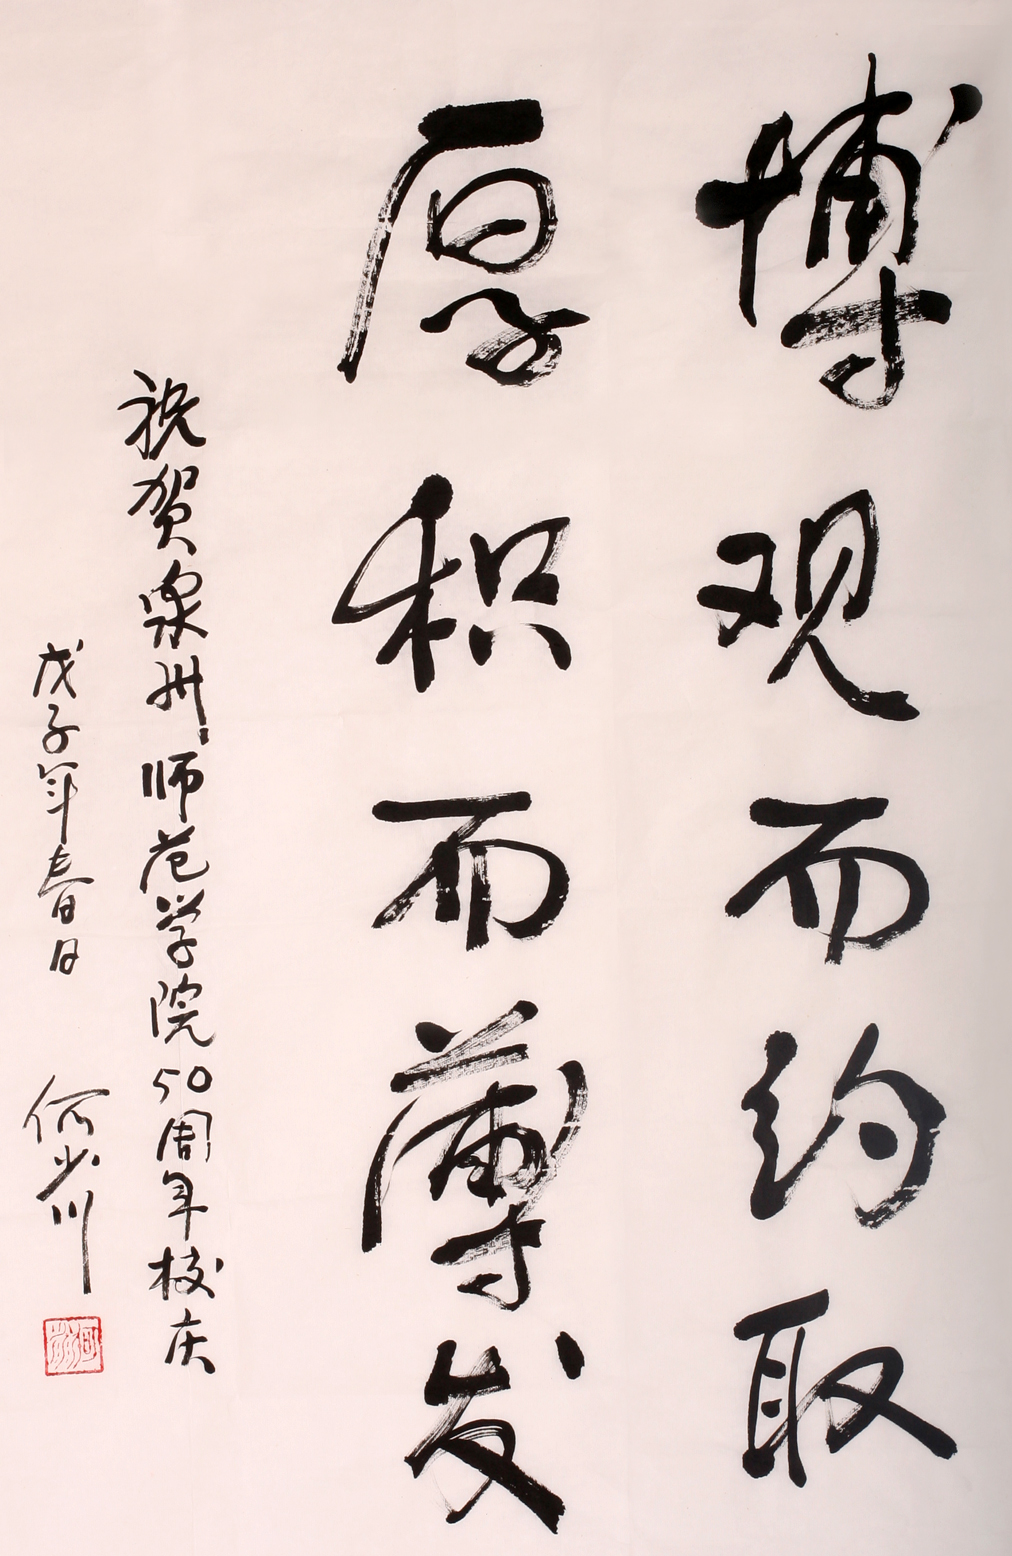 博观而约取
厚积而薄发
祝贺泉州师范学院50周年校庆
戊子年春日
何少川